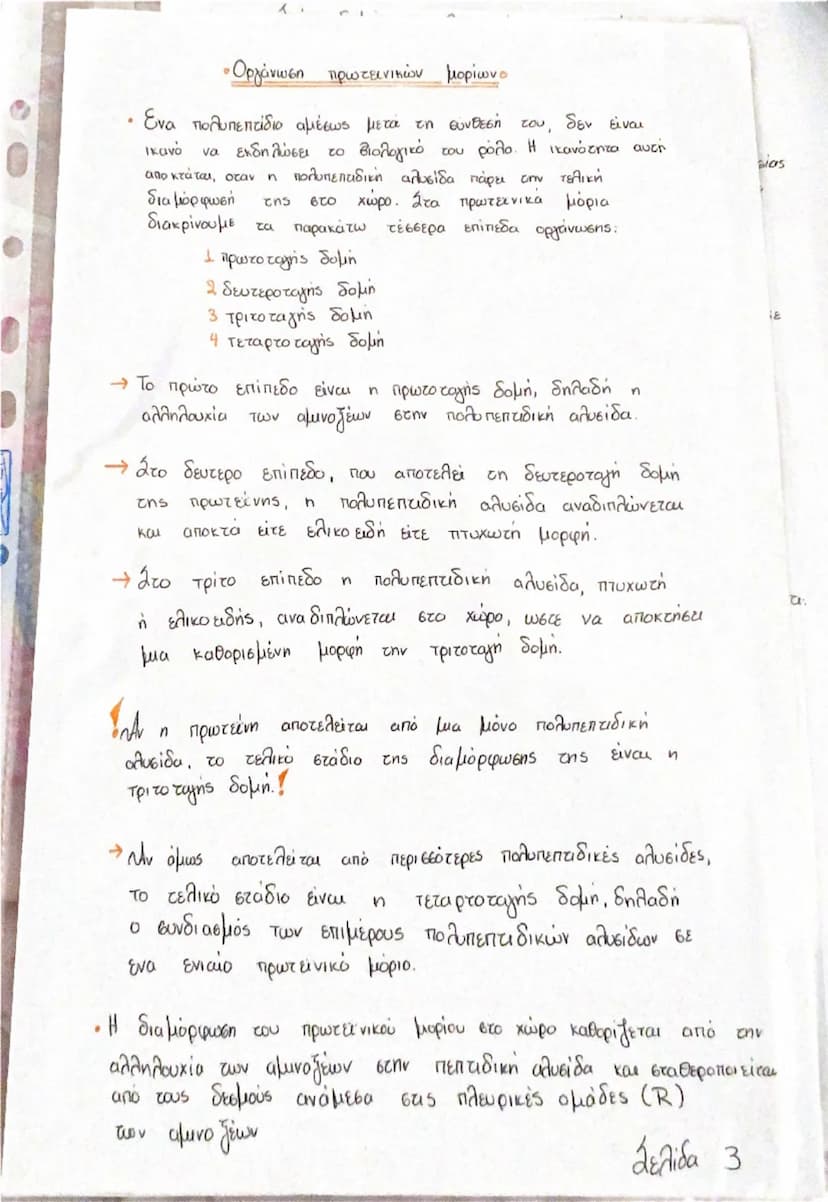 Οργάνωση πρωτεινικών μορίων
• Ενα πολυπεπτίδιο αμέσως μετά τη συνθεσή του, δεν είναι
ικανό να εκδηλώσει το βιολογικό του ρόλο. Η ικανότητα αυτή
αποκτάται, οταν η πολυπεπτιδική αλυσίδα πάρει την τελική
διαμόρφωσή της στο χώρο. Στα πρωτεινικά μόρια
διακρίνουμε τα παρακάτω τέσσερα επίπεδα οργάνωσης:
1 πρωτοταγής δομή
2 δευτεροταγής δομή
3 τριτοταγής δομή
4 τεταρτοταγής δομή
→ Το πρώτο επίπεδο είναι η πρωτοταγής δομή, δηλαδή η
αλληλουχία των αμινοξέων στην πολυπεπτιδική αλυσίδα.
→ Στο δευτερο επίπεδο, που αποτελεί τη δευτεροταγή δομή
της πρωτείνης, η πολυπεπτιδική αλυσίδα αναδιπλώνεται
και αποκτά είτε ελικοειδή είτε πτυχωτή μορφή.
→ Στο τρίτο επίπεδο η πολυπεπτιδική αλυσίδα, πτυχωτή
ή ελικοειδής, αναδιπλώνεται στο χώρο, ωστε να αποκτήσει
μια καθορισμένη μορφή την τριτοταγή δομή.
! Αν η πρωτείνη αποτελείται από μια μόνο πολυπεπτιδική
αλυσίδα, το τελικό στάδιο της διαμόρφωσης της είναι η
τριτοταγής δομή. !
→ Αν όμως αποτελείται από περισσότερες πολυπεπτιδικές αλυσίδες,
το τελικό στάδιο είναι η τεταρτοταγής δομή, δηλαδή
ο συνδιασμός των επιμέρους πολυπεπτιδικών αλυσίδων σε
ενα ενιαίο πρωτεινικό μόριο.
• Η διαμόρφωση του πρωτεινικού μορίου στο χώρο καθορίζεται από την
αλληλουχία των αμινοξέων στην πεπτιδική αλυσίδα και σταθεροποιείται
από τους δεσμούς ανάμεσα στις πλευρικές ομάδες (R)
των αμινοξέων
Σελίδα 3